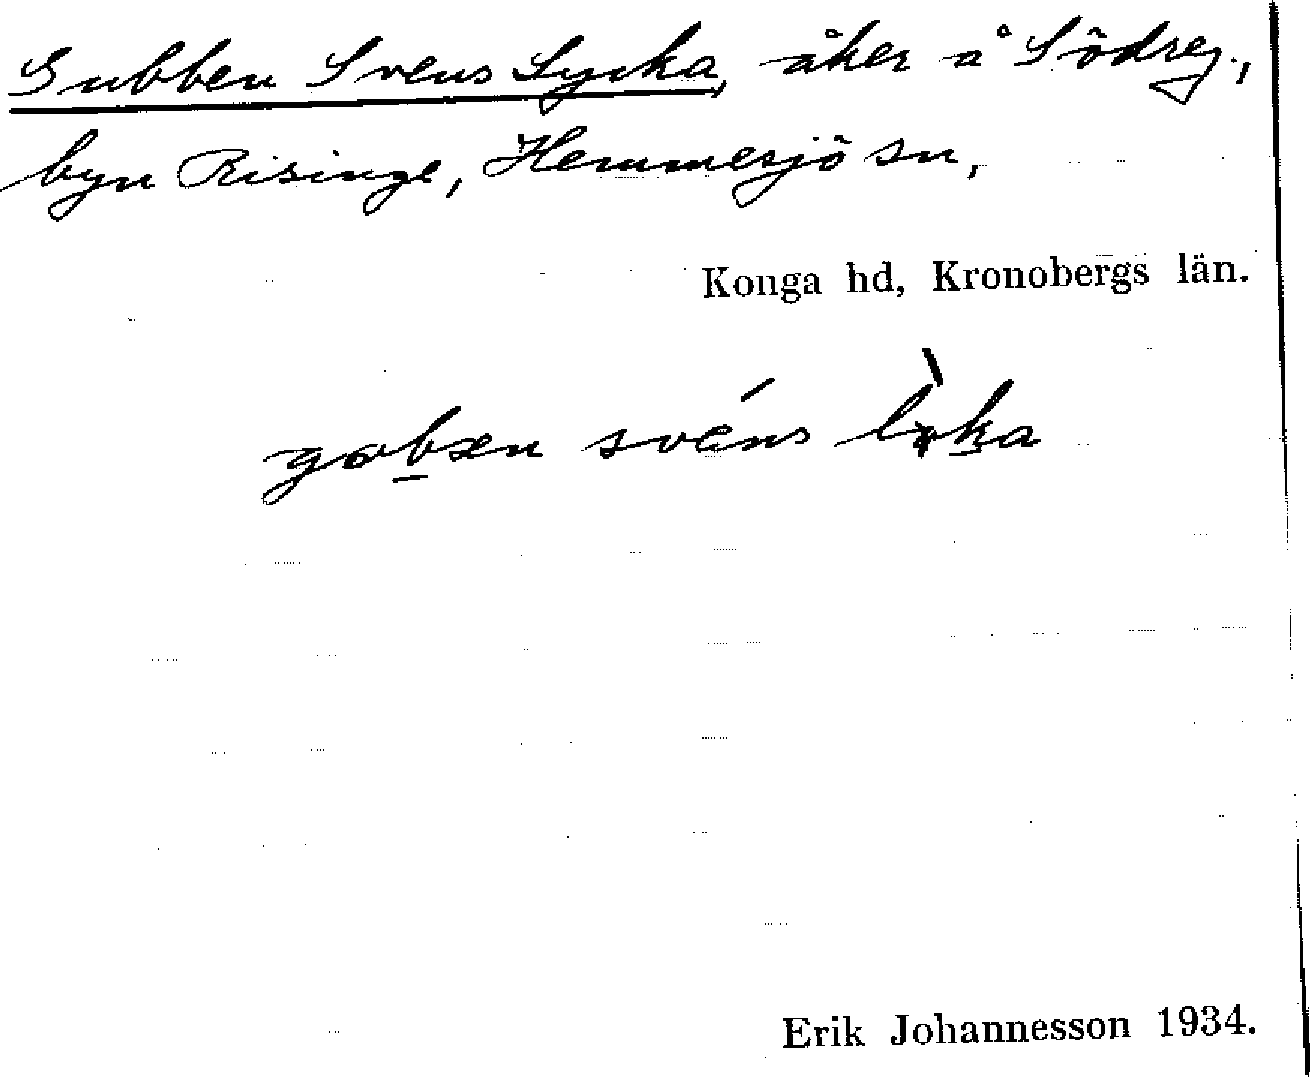 Gubben Svens Lycka, åker å Södreg.,
byn Risinge, Hemmesjö sn,
Konga hd, Kronobergs län.
svéns
Erik Johannesson 1934.